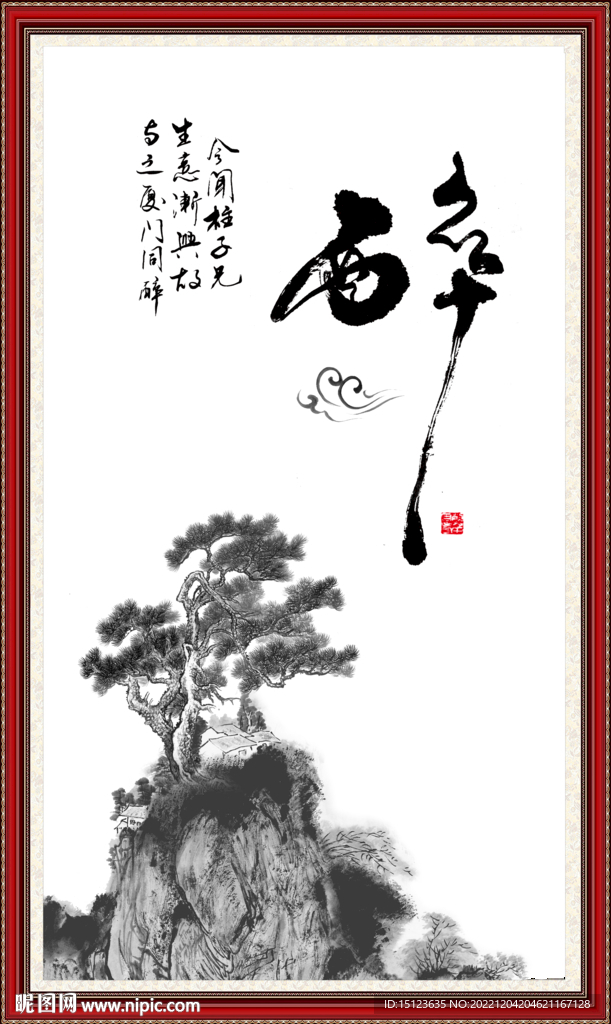 醉
今闻柱子兄
生意渐兴故
与之厦门同醉
昵图网 www.nipic.com
ID:15123635 NO:20221204204621167128